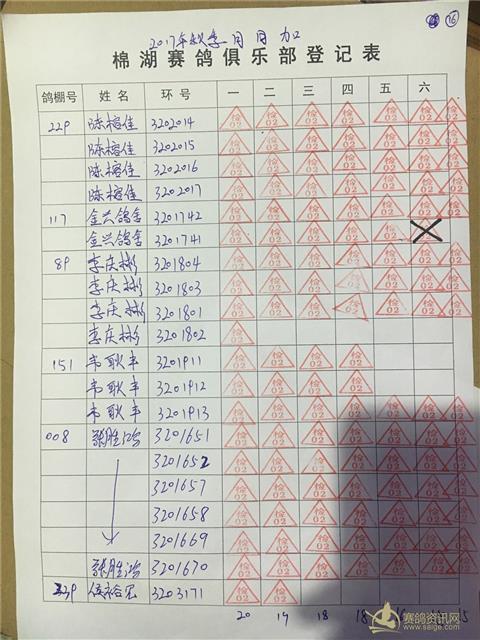 ⑯
2017年秋季
棉湖赛鸽俱乐部登记表
鸽棚号 姓名 环号 一 二 三 四 五 六
229 陈榕佳 3202014 检02 检02 检02 检02 检02 检02 检02
陈榕佳 3202015 检02 检02 检02 检02 检02 检02 检02
陈榕佳 3202016 检02 检02 检02 检02 检02 检02 检02
陈榕佳 3202017 检02 检02 检02 检02 检02 检02 检02
117 金兴鸽舍 3201742 检02 检02 检02 检02 检02 检02 检02
金兴鸽舍 3201741 检02 检02 检02 检02 检02
89 李庆彬 3201804 检02 检02 检02 检02 检02 检02 检02
李庆彬 3201803 检02 检02 检02 检02 检02 检02 检02
李庆彬 3201801 检02 检02 检02 检02 检02 检02 检02
李庆彬 3201802 检02
151 韦耿丰 3201911 检02 检02 检02 检02
韦耿丰 3201912 检02 检02 检02 检02
韦耿丰 3201913 检02 检02 检02 检02 检02 检02 检02
008 张胜鸿 3201651 检02 检02 检02 检02 检02 检02 检02
3201652 检02 检02 检02 检02 检02 检02 检02
3201657 检02 检02 检02 检02 检02 检02 检02
3201658 检02 检02 检02 检02 检02 检02 检02
3201669 检02 检02 检02 检02 检02 检02 检02
张胜鸿 3201670 检02 检02 检02 检02 检02 检02 检02
3203171 检02 检02 检02 检02 检02 检02 检02
20 19 18 18 15
赛鸽资讯网
www.saige.com